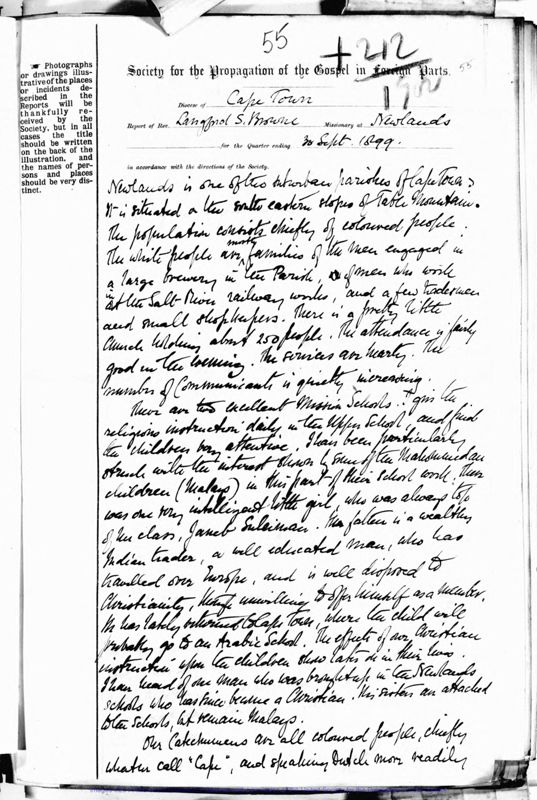 55
+ 212
1900
55
☛ Photographs
or drawings illus-
trative of the places
or incidents de-
scribed in the
Reports will be
thankfully re-
ceived by the
Society, but in all
cases the title
should be written
on the back of the
illustration, and
the names of per-
sons and places
should be very dis-
tinct.
Society for the Propagation of the Gospel in Foreign Parts.
Diocese of Cape Town
Report of Rev. Langford S. Browne Missionary at Newlands
for the Quarter ending 30 Sept. 1899.
in accordance with the directions of the Society.
Newlands is one of the suburban parishes of Cape Town.
It is situated on the south eastern slopes of Table Mountain.
The population consists chiefly of coloured people.
The white people are mostly families of the men engaged in
a large brewery in the Parish, or of men who work
at the Salt River railway works, and a few tradesmen
and small shopkeepers. There is a pretty little
Church holding about 250 people. The attendance is fairly
good in the evening. The services are hearty. The
number of Communicants is quietly increasing.
There are two excellent Mission Schools. I give the
religious instruction daily in the Upper School, and find
the children very attentive. I have been particularly
struck with the interest shown by some of the Mahommedan
children (Malays) in this part of their school work. There
was one very intelligent little girl, who was always top
of the class, Janeb Suleiman. Her father is a wealthy
Indian trader, a well educated man, who has
travelled over Europe, and is well disposed to
Christianity, though unwilling to offer himself as a member.
He has lately returned to Cape Town, where the child will
probably go to an Arabic School. The effects of our Christian
instruction upon the children shows later on in their lives.
I have heard of one man who was brought up in the Newlands
schools who has since become a Christian. His sisters are attached
to the Schools, but remain Malays.
Our Catechumens are all coloured people, chiefly
what we call "Cape", and speaking Dutch more readily